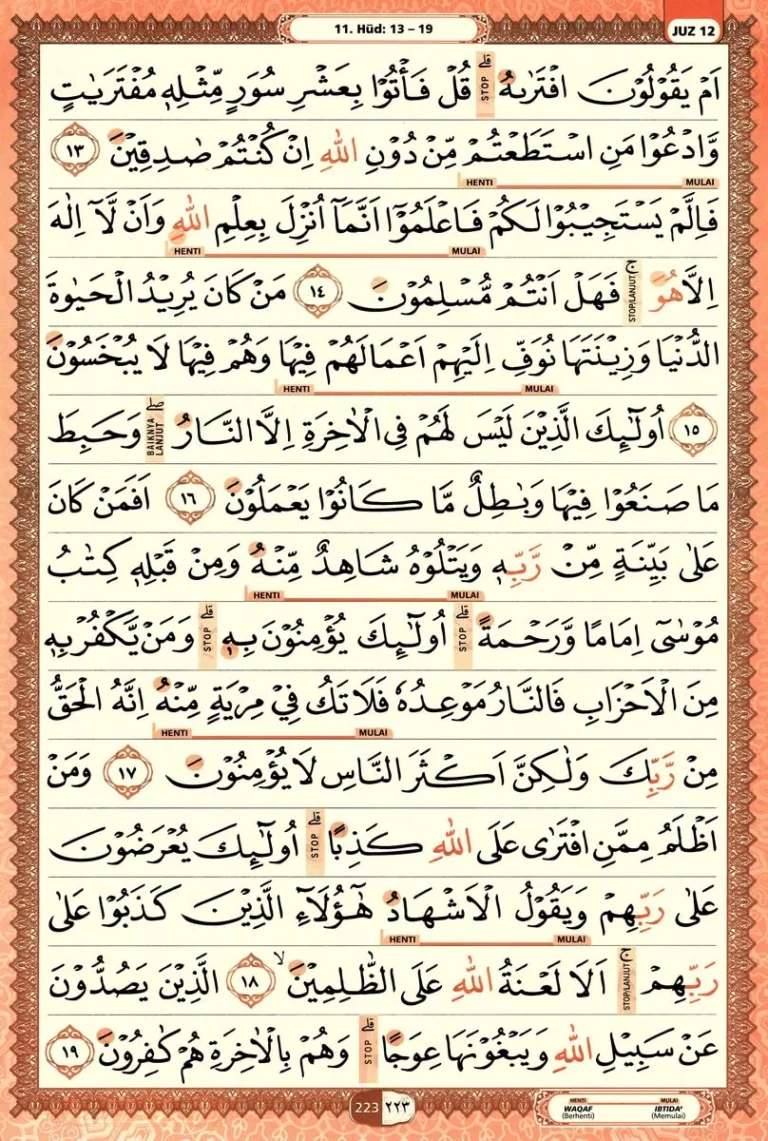 11. Hūd: 13 – 19
JUZ 12
اَمْ يَقُوْلُوْنَ افْتَرٰىهُ ۗ STOP قُلْ فَأْتُوْا بِعَشْرِ سُوَرٍ مِّثْلِهٖ مُفْتَرَيٰتٍ
وَّادْعُوْا مَنِ اسْتَطَعْتُمْ مِّنْ دُوْنِ اللّٰهِ اِنْ كُنْتُمْ صٰدِقِيْنَ ١٣
MULAI HENTI
فَاِلَّمْ يَسْتَجِيْبُوْا لَكُمْ فَاعْلَمُوْٓا اَنَّمَآ اُنْزِلَ بِعِلْمِ اللّٰهِ وَاَنْ لَّآ اِلٰهَ
MULAI HENTI
اِلَّا هُوَ ۚ STOP/LANJUT فَهَلْ اَنْتُمْ مُّسْلِمُوْنَ ١٤ مَنْ كَانَ يُرِيْدُ الْحَيٰوةَ
الدُّنْيَا وَزِيْنَتَهَا نُوَفِّ اِلَيْهِمْ اَعْمَالَهُمْ فِيْهَا وَهُمْ فِيْهَا لَا يُبْخَسُوْنَ
MULAI HENTI
١٥ اُولٰۤىِٕكَ الَّذِيْنَ لَيْسَ لَهُمْ فِى الْاٰخِرَةِ اِلَّا النَّارُ ۖ BAIKNYA LANJUT وَحَبِطَ
مَا صَنَعُوْا فِيْهَا وَبٰطِلٌ مَّا كَانُوْا يَعْمَلُوْنَ ١٦ اَفَمَنْ كَانَ
عَلٰى بَيِّنَةٍ مِّنْ رَّبِّهٖ وَيَتْلُوْهُ شَاهِدٌ مِّنْهُ وَمِنْ قَبْلِهٖ كِتٰبُ
MULAI HENTI
مُوْسٰٓى اِمَامًا وَّرَحْمَةً ۗ STOP اُولٰۤىِٕكَ يُؤْمِنُوْنَ بِهٖ ۗ STOP وَمَنْ يَّكْفُرْ بِهٖ
مِنَ الْاَحْزَابِ فَالنَّارُ مَوْعِدُهٗ فَلَا تَكُ فِيْ مِرْيَةٍ مِّنْهُ اِنَّهُ الْحَقُّ
MULAI HENTI
مِنْ رَّبِّكَ وَلٰكِنَّ اَكْثَرَ النَّاسِ لَا يُؤْمِنُوْنَ ١٧ وَمَنْ
اَظْلَمُ مِمَّنِ افْتَرٰى عَلَى اللّٰهِ كَذِبًا ۗ STOP اُولٰۤىِٕكَ يُعْرَضُوْنَ
عَلٰى رَبِّهِمْ وَيَقُوْلُ الْاَشْهَادُ هٰٓؤُلَاۤءِ الَّذِيْنَ كَذَبُوْا عَلٰى
MULAI HENTI
رَبِّهِمْ ۚ STOP/LANJUT اَلَا لَعْنَةُ اللّٰهِ عَلَى الظّٰلِمِيْنَ ۙ ١٨ الَّذِيْنَ يَصُدُّوْنَ
عَنْ سَبِيْلِ اللّٰهِ وَيَبْغُوْنَهَا عِوَجًا ۗ STOP وَهُمْ بِالْاٰخِرَةِ هُمْ كٰفِرُوْنَ ١٩
223 ٢٢٣
HENTI MULAI
WAQAF IBTIDA'
(Berhenti) (Memulai)